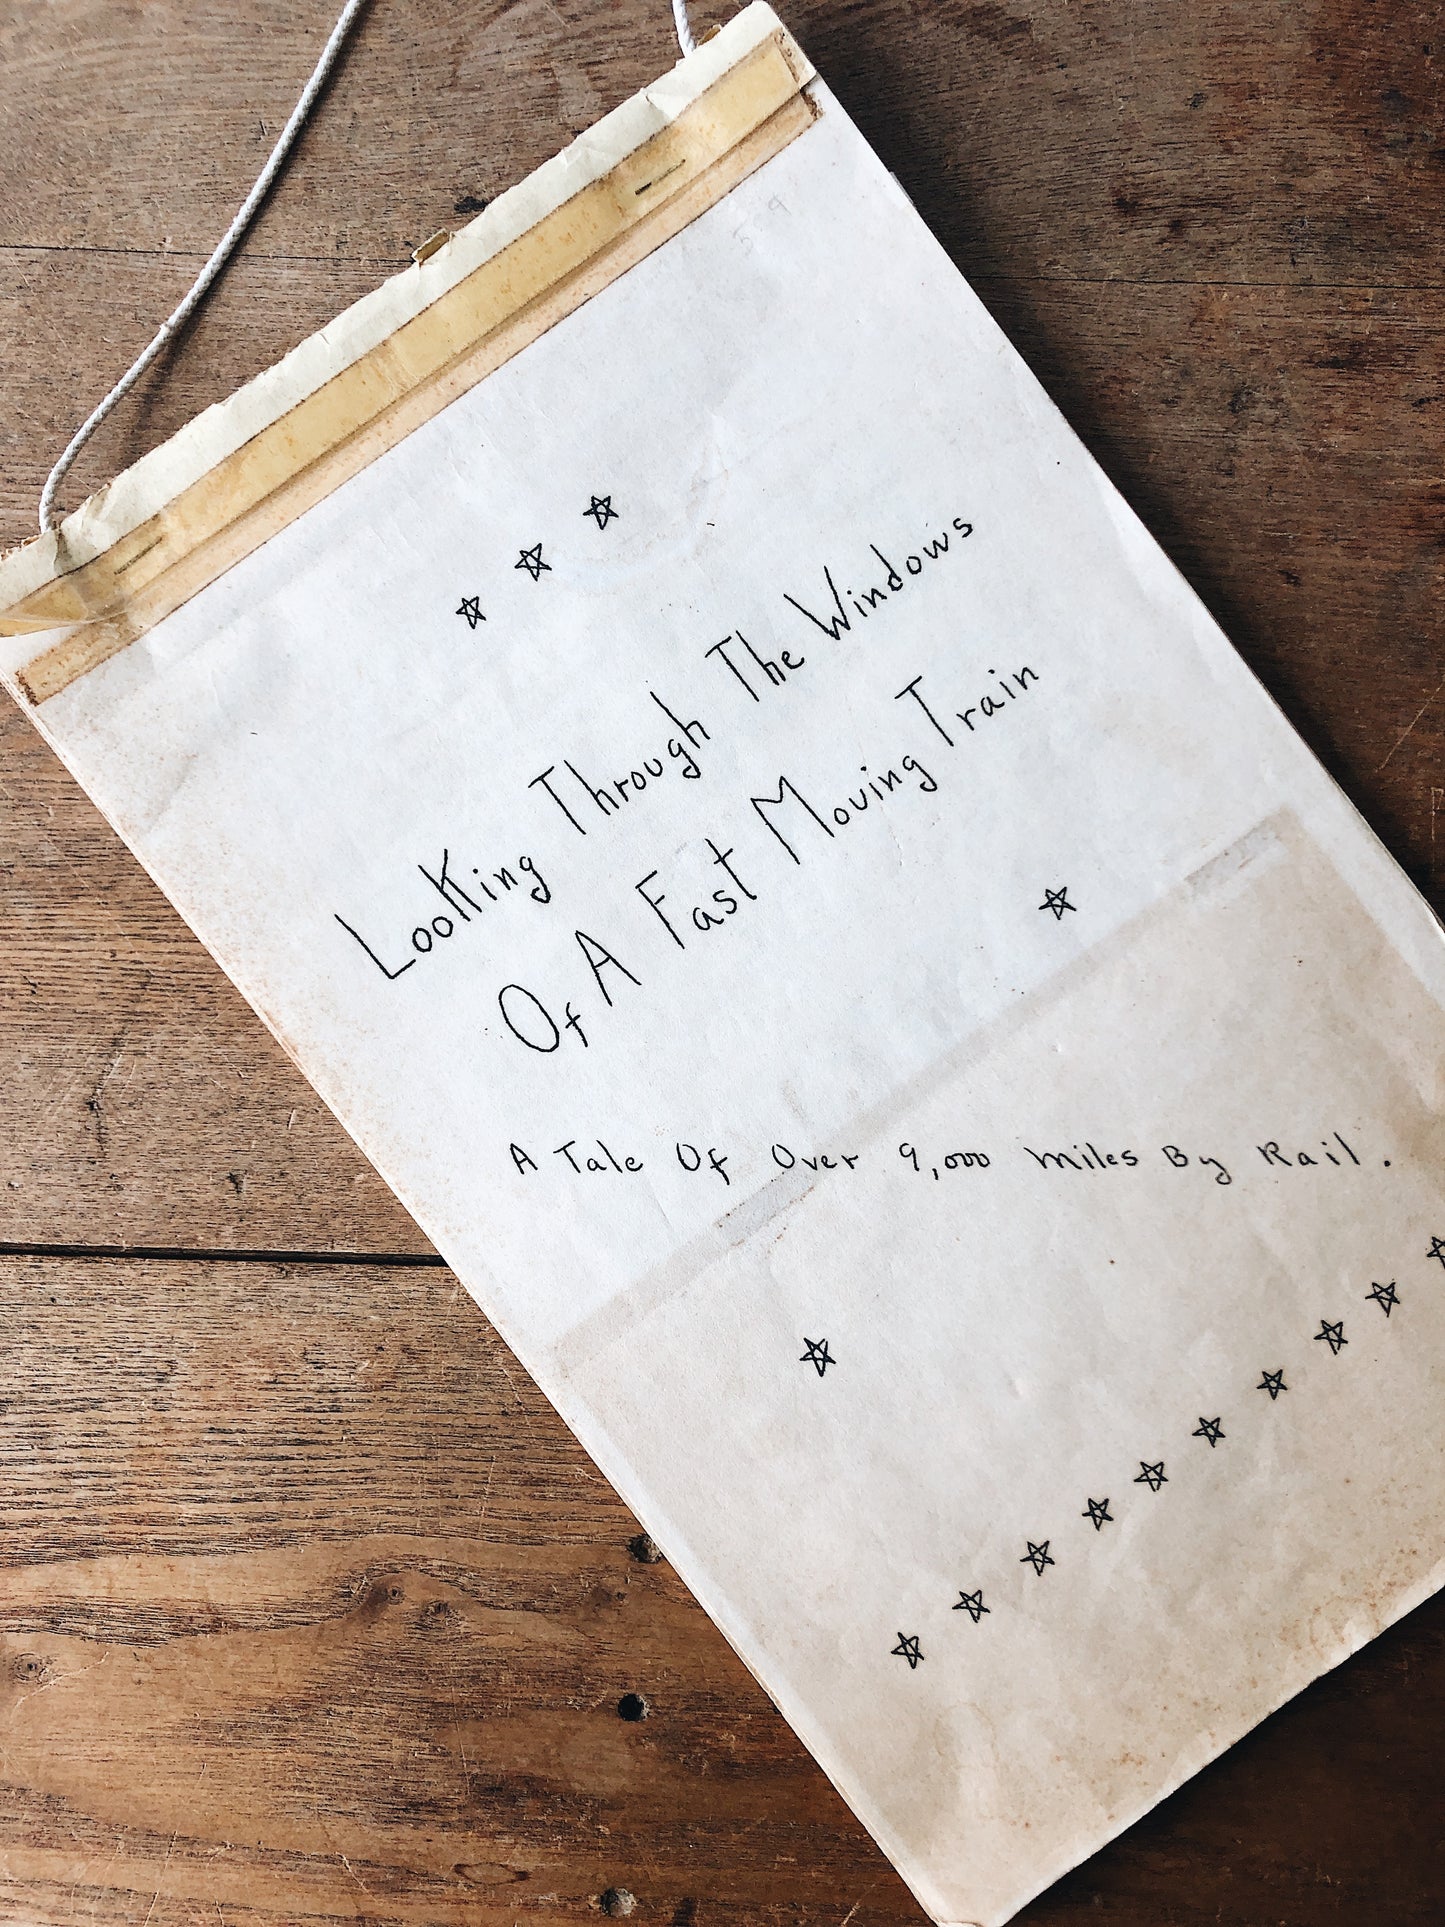 59
Looking Through The Windows
Of A Fast Moving Train
A Tale Of Over 9,000 Miles By Rail.